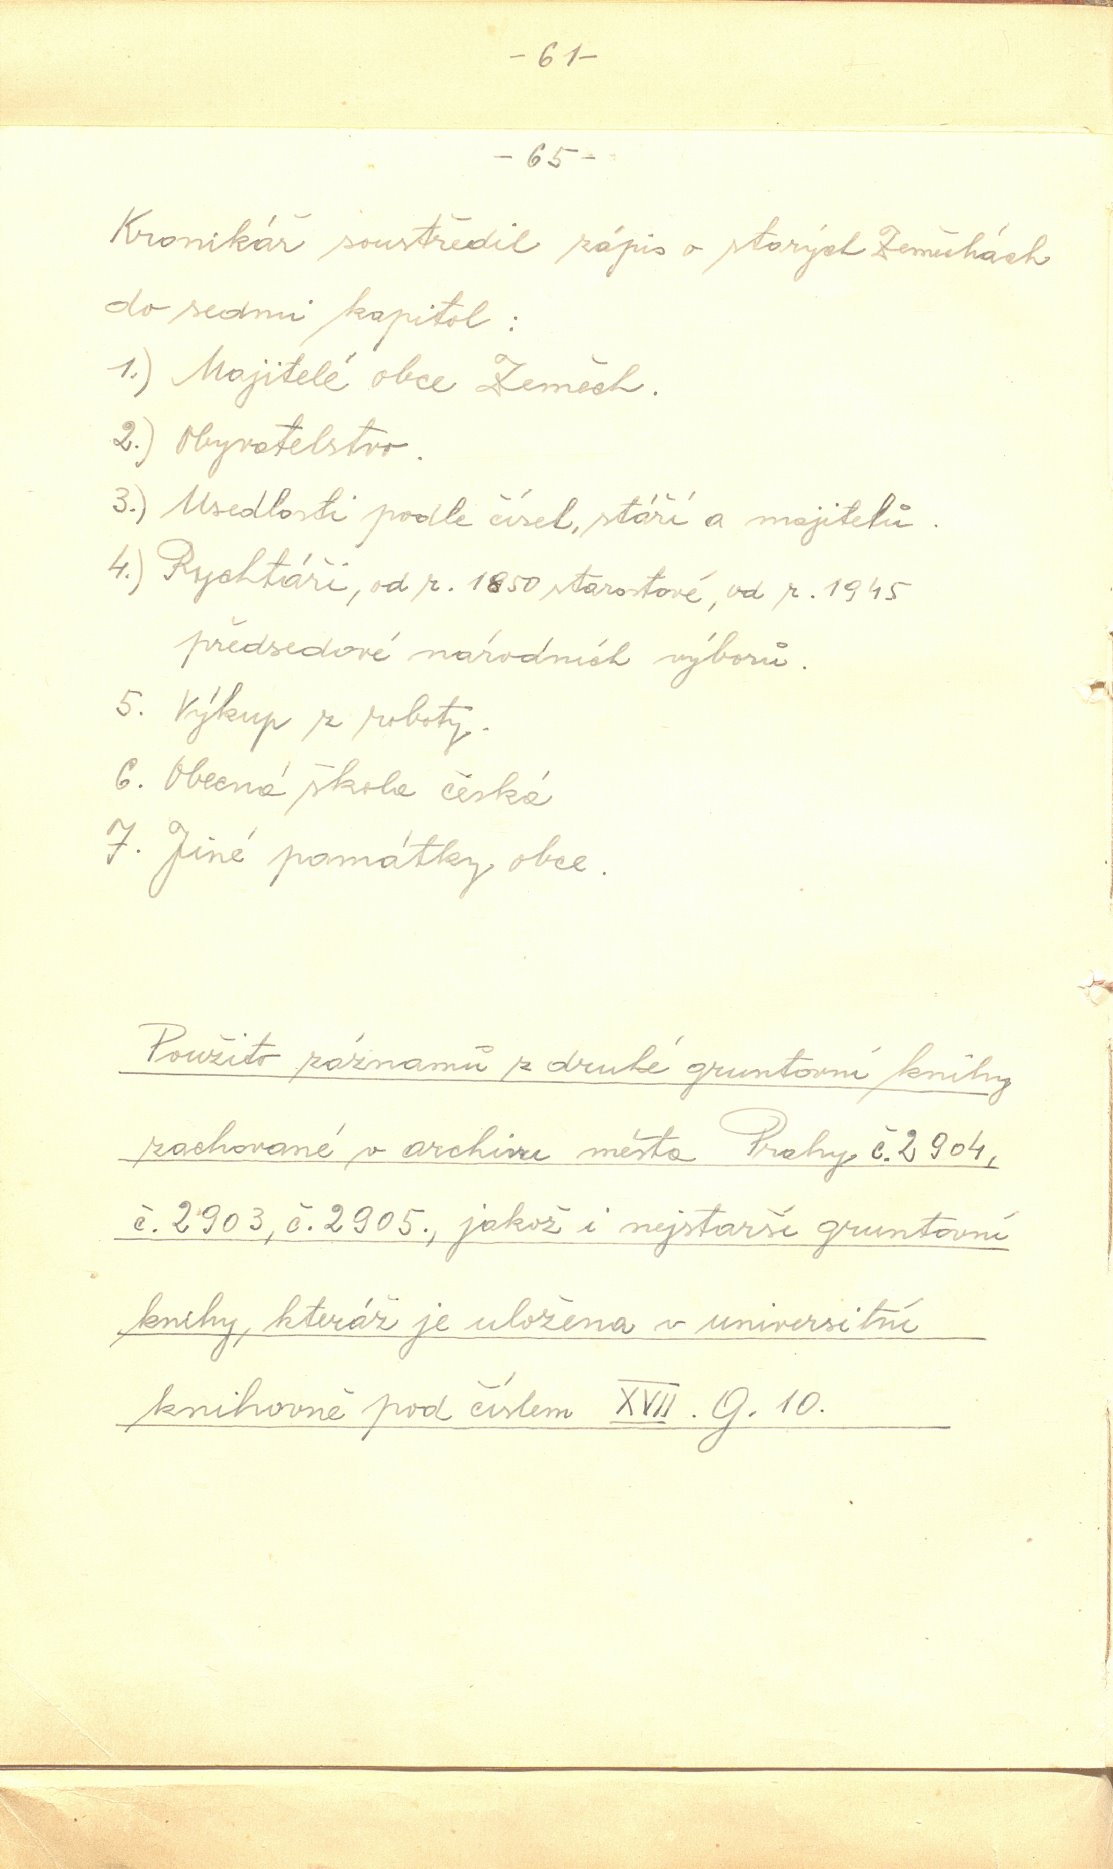 - 61 -
- 65 -
Kronikář soustředil zápis o starých Zeměchách
do sedmi kapitol :
1.) Majitelé obce Zeměch.
2.) Obyvatelstvo.
3.) Usedlosti podle čísel, stáří a majitelů.
4.) Rychtáři, od r. 1850 starostové, od r. 1945
předsedové národních výborů.
5. Výkup z roboty.
6. Obecná škola česká
7. Jiné památky obce.
Použito záznamů z druhé gruntovní knihy
zachované v archivu města Prahy č. 2904,
č. 2903, č. 2905., jakož i nejstarší gruntovní
knihy, kteráž je uložena v universitní
knihovně pod číslem XVII. G. 10.